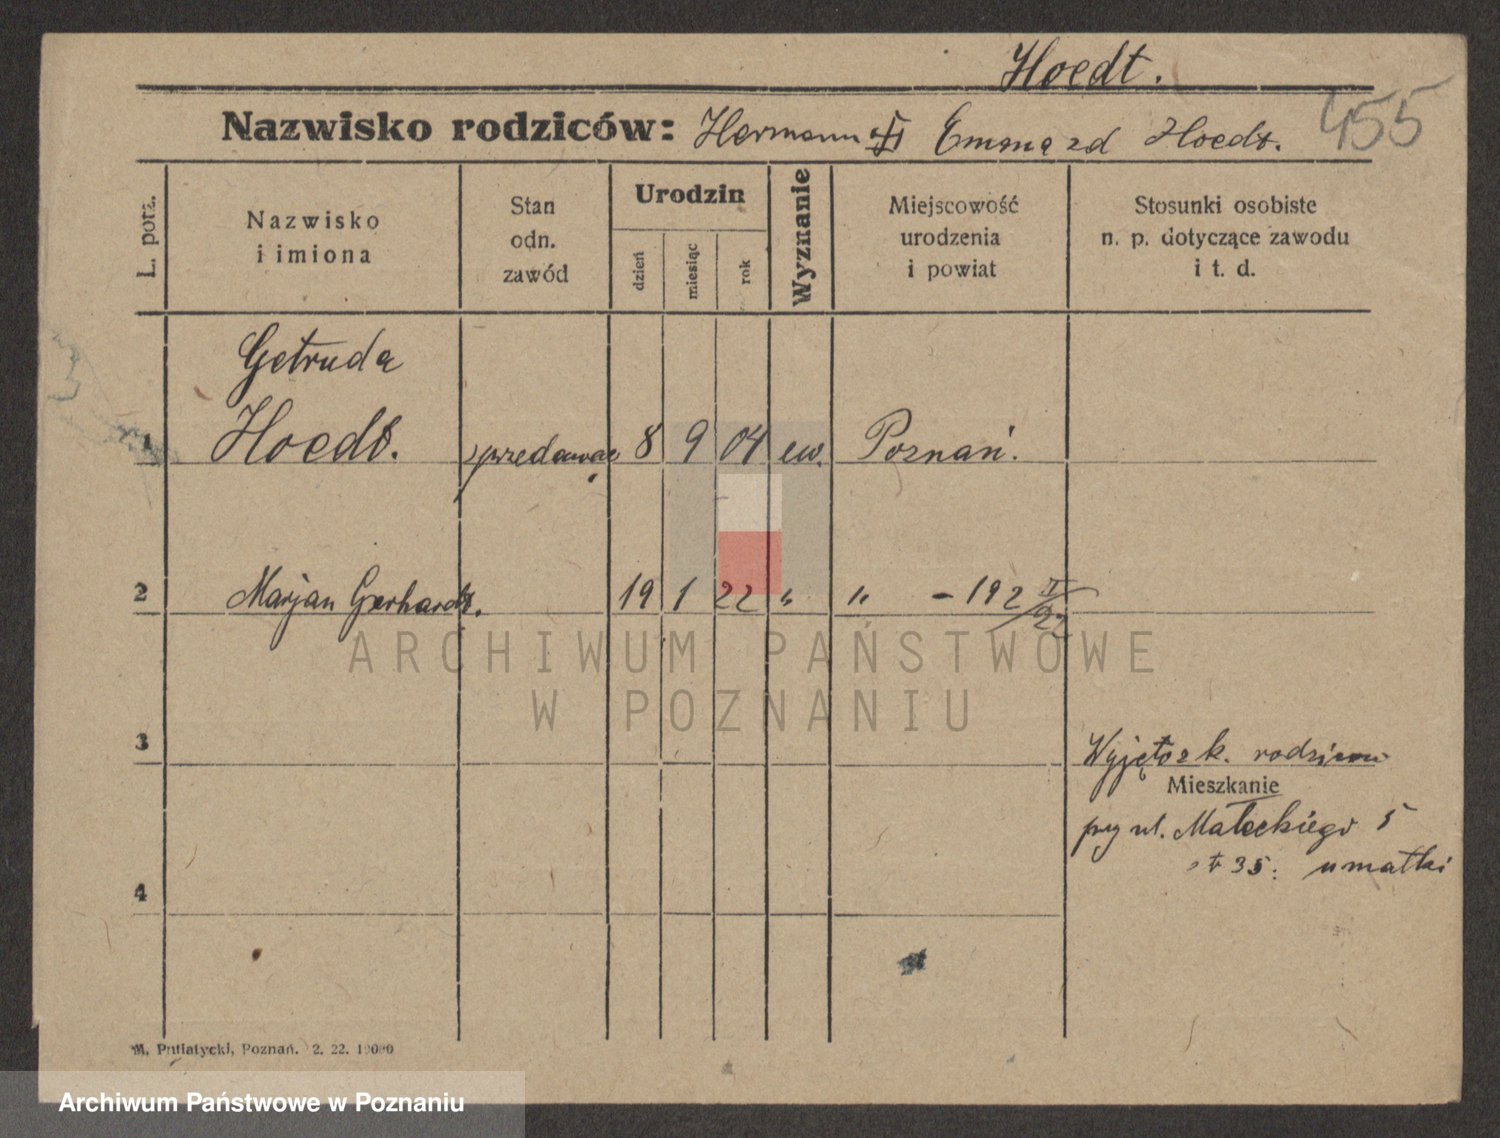 Hoedt.
455
Nazwisko rodziców: Hermann Emma zd Hoedt.
L. porz.
Nazwisko
i imiona
Stan
odn.
zawód
Urodzin
dzień
miesiąc
rok
Wyznanie
Miejscowość
urodzenia
i powiat
Stosunki osobiste
n. p. dotyczące zawodu
i t. d.
Getruda
1 Hoedt. sprzedawac 8 9 04 ew. Poznań.
2 Marjan Gerhardt. 19 1 22 " " - 192
ARCHIWUM PAŃSTWOWE
W POZNANIU
3
Wyjęto z k. rodziców
Mieszkanie
przy ul. Małeckiego 5
35. u matki
4
M. Putiatycki, Poznań. 2. 22. 10000
Archiwum Państwowe w Poznaniu